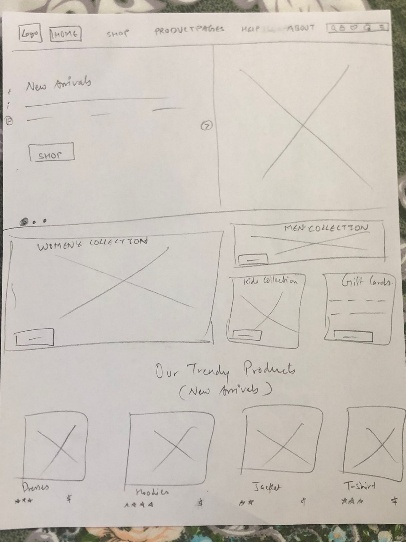 Logo HOME SHOP PRODUCT PAGES HELP ABOUT
New Arrivals
SHOP
WOMEN'S COLLECTION
MEN COLLECTION
Kids Collection
Gift Cards
Our Trendy Products
(New Arrivals)
Dresses Hoodies Jacket T-shirt
*** $ **** $ ** $ *** $